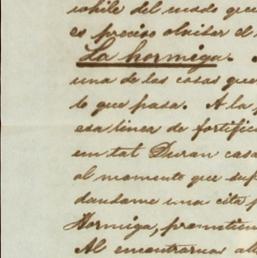 while del modo que
es preciso olvidar el
La hormiga.
una de las cosas que
lo que pasa. A la
esa linea de fortific
em tal Duran casa
al momento que sup
dandame una cita p
Hormiga, prometien
Al encontrarnos all